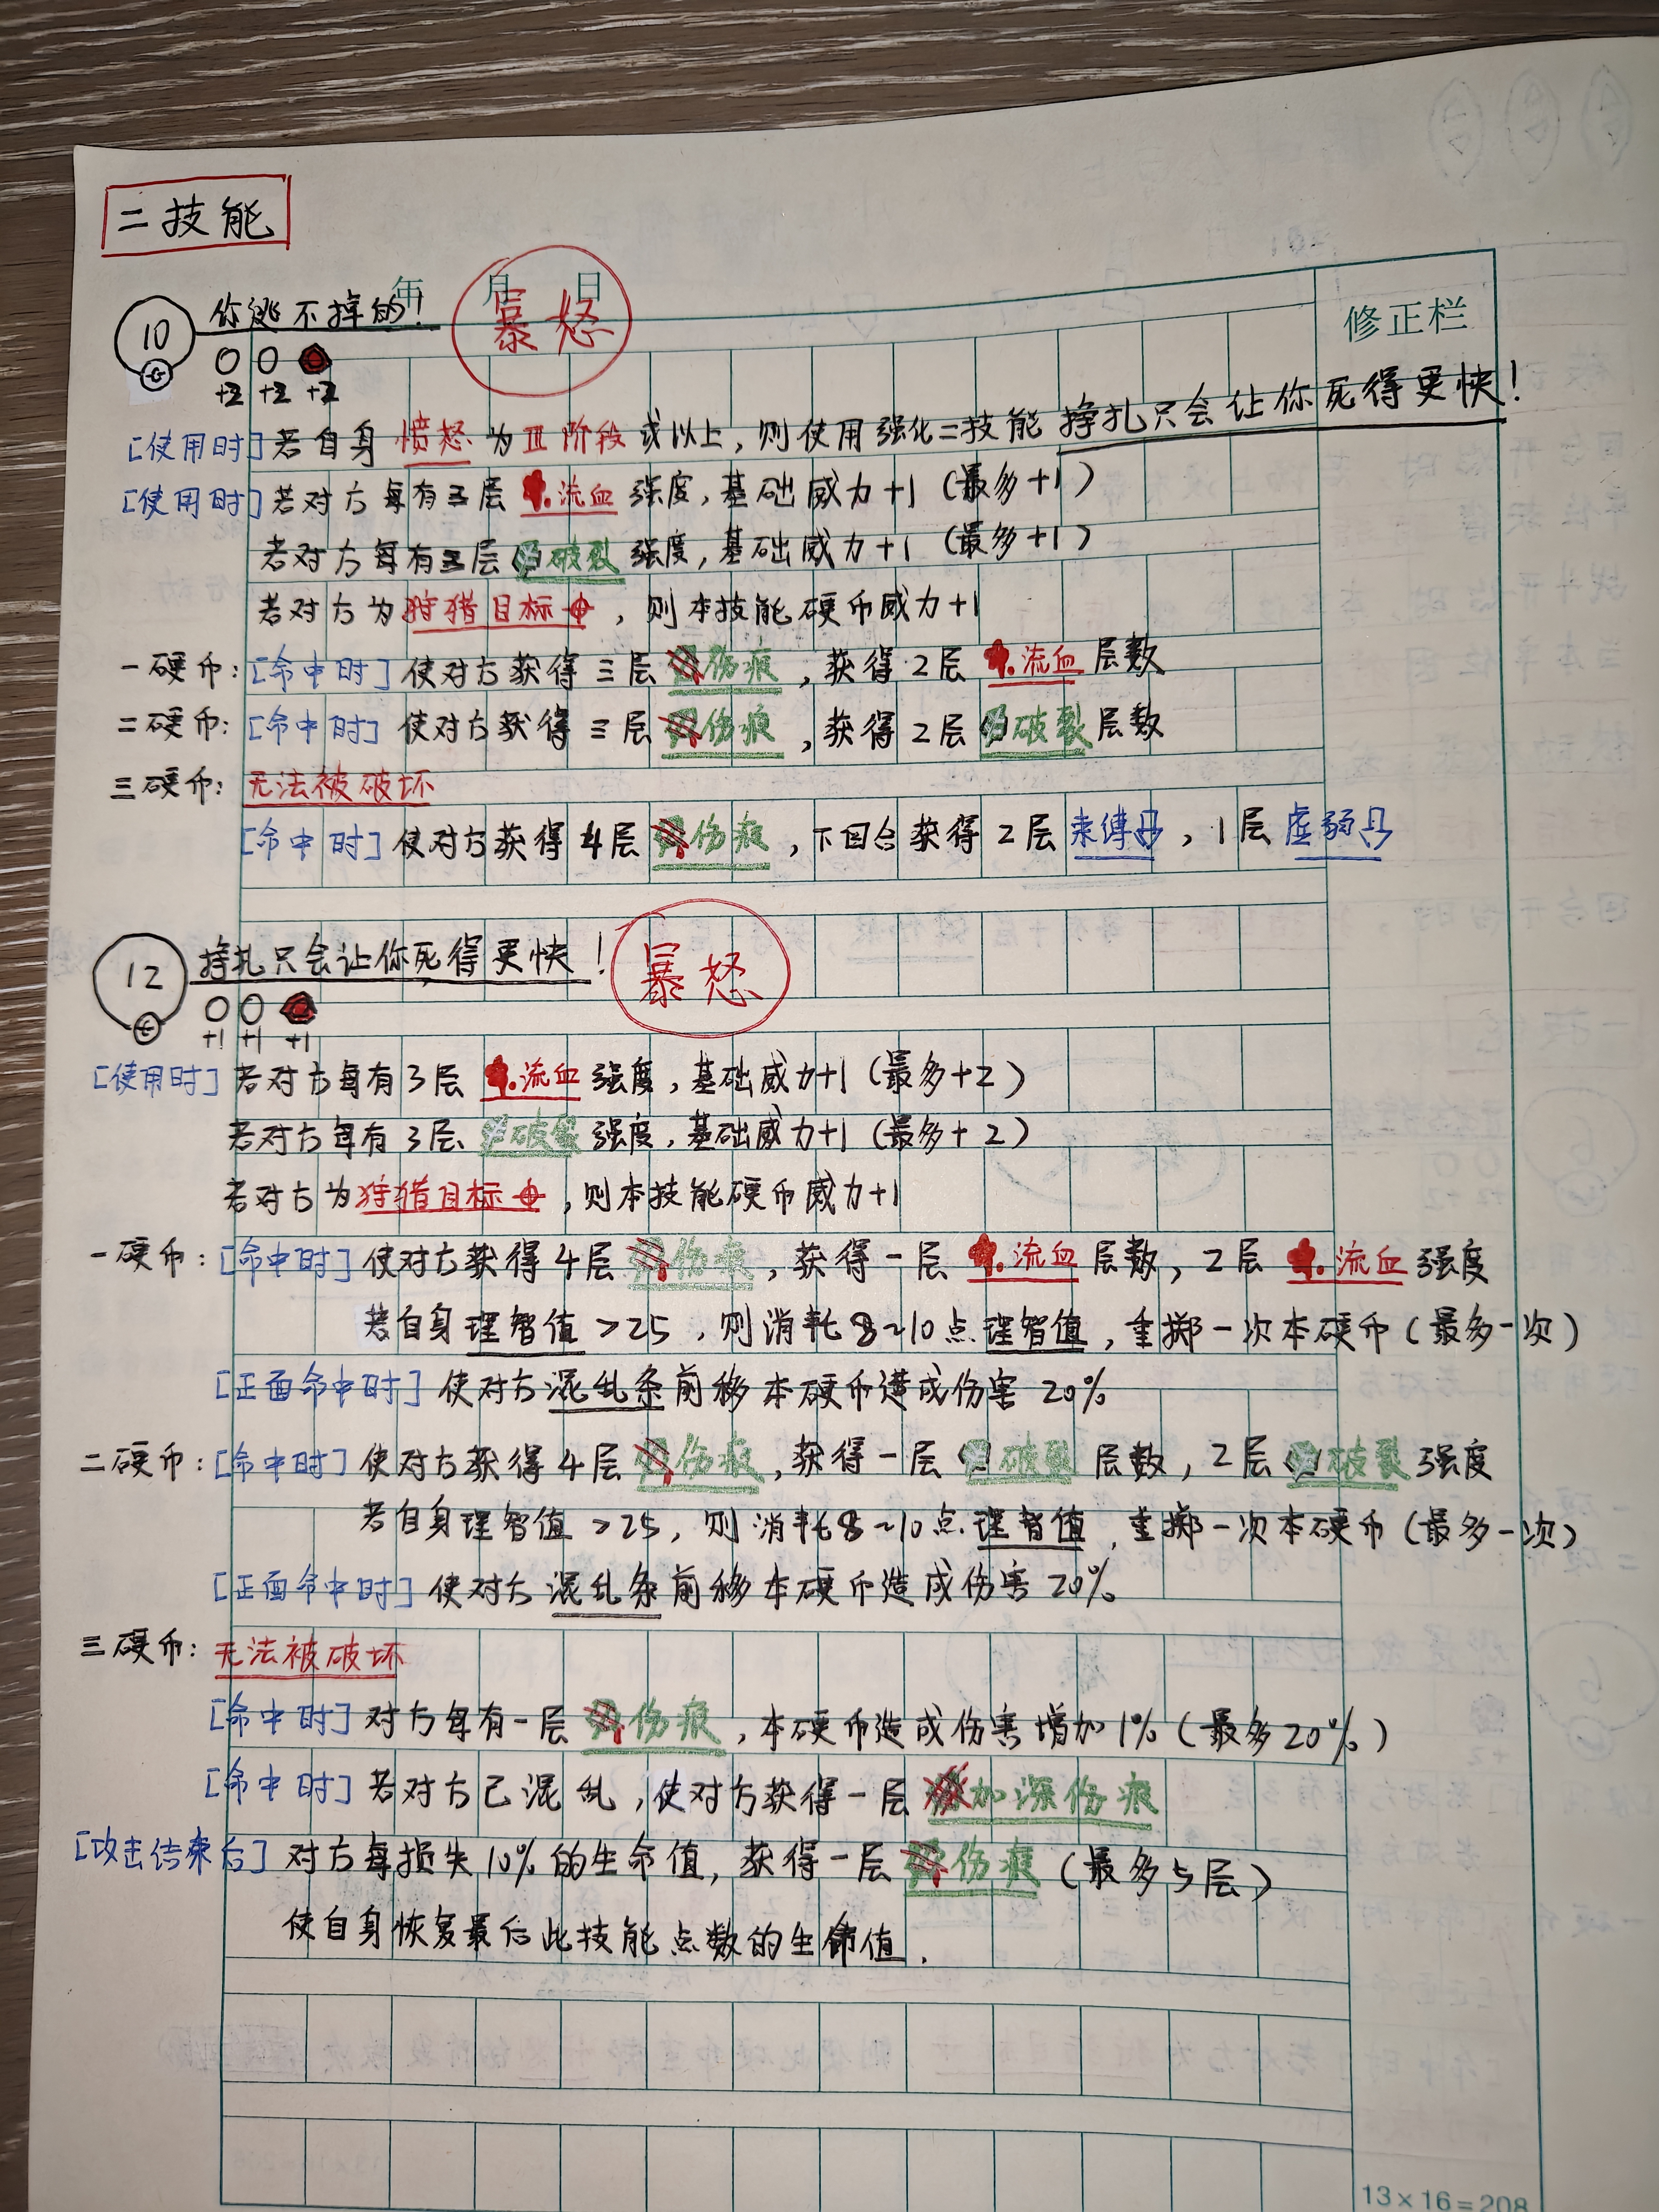 二技能
年 月 日
修正栏
10 你逃不掉的！ 暴怒
+2 +2 +2
[使用时] 若自身愤怒为Ⅲ阶段或以上，则使用强化二技能 挣扎只会让你死得更快！
[使用时] 若对方每有三层流血强度，基础威力+1（最多+1）
若对方每有三层破裂强度，基础威力+1（最多+1）
若对方为狩猎目标，则本技能硬币威力+1
一硬币：[命中时] 使对方获得三层伤痕，获得2层流血层数
二硬币：[命中时] 使对方获得三层伤痕，获得2层破裂层数
三硬币：无法被破坏
[命中时] 使对方获得4层伤痕，下回合获得2层束缚，1层虚弱
12 挣扎只会让你死得更快！ 暴怒
+1 +1 +1
[使用时] 若对方每有3层流血强度，基础威力+1（最多+2）
若对方每有3层破裂强度，基础威力+1（最多+2）
若对方为狩猎目标，则本技能硬币威力+1
一硬币：[命中时] 使对方获得4层伤痕，获得一层流血层数，2层流血强度
若自身理智值>25，则消耗8~10点理智值，重掷一次本硬币（最多一次）
[正面命中时] 使对方混乱条前移本硬币造成伤害20%
二硬币：[命中时] 使对方获得4层伤痕，获得一层破裂层数，2层破裂强度
若自身理智值>25，则消耗8~10点理智值，重掷一次本硬币（最多一次）
[正面命中时] 使对方混乱条前移本硬币造成伤害20%
三硬币：无法被破坏
[命中时] 对方每有一层伤痕，本硬币造成伤害增加1%（最多20%）
[命中时] 若对方已混乱，使对方获得一层加深伤痕
[攻击结束后] 对方每损失10%的生命值，获得一层伤痕（最多5层）
使自身恢复最后此技能点数的生命值.
13×16=208